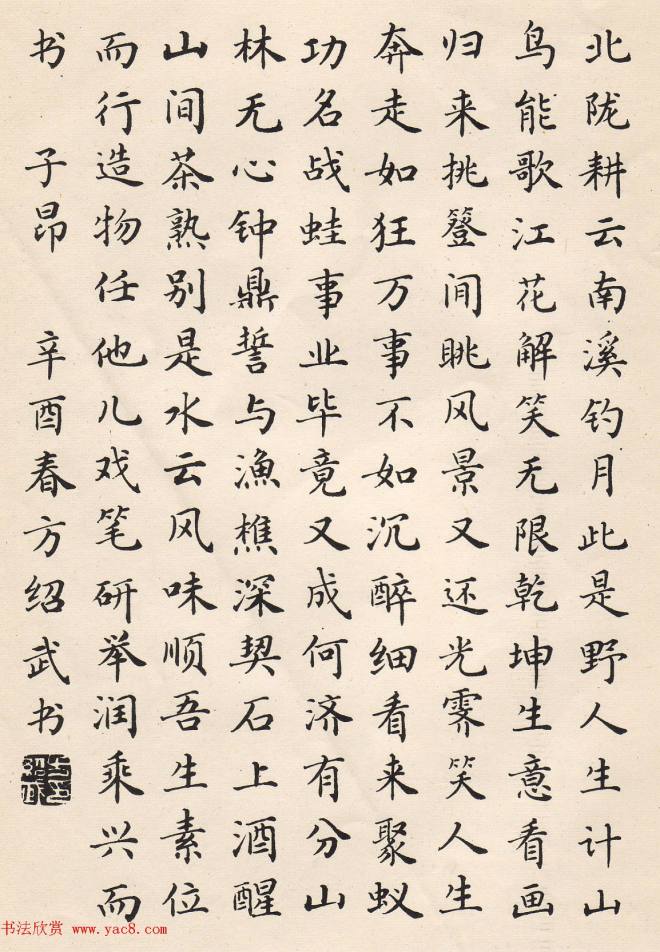 北陇耕云南溪钓月此是野人生计山
鸟能歌江花解笑无限乾坤生意看画
归来挑簦间眺风景又还光霁笑人生
奔走如狂万事不如沉醉细看来聚蚁
功名战蛙事业毕竟又成何济有分山
林无心钟鼎誓与渔樵深契石上酒醒
山间茶熟别是水云风味顺吾生素位
而行造物任他儿戏笔研举润乘兴而
书 子昂 辛酉春方绍武书
书法欣赏 www.yac8.com